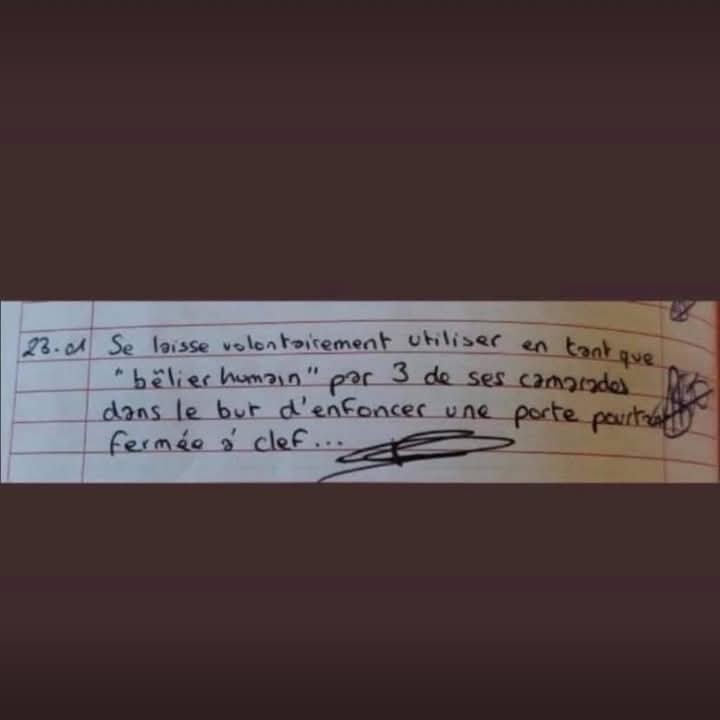 23.01 Se laisse volontairement utiliser en tant que
"bêlier humain" par 3 de ses camarades
dans le but d'enfoncer une porte pourtant
fermée à clef...